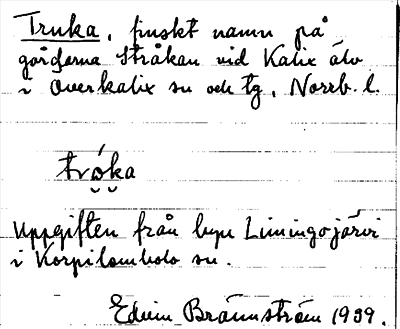 Truka, finskt namn på
gårdarna Stråkan vid Kalix älv
i Överkalix sn och tg, Norrb. l.
tróka
Uppgiften från byn Limingojärvi
i Korpilombolo sn.
Edvin Brännström 1939.